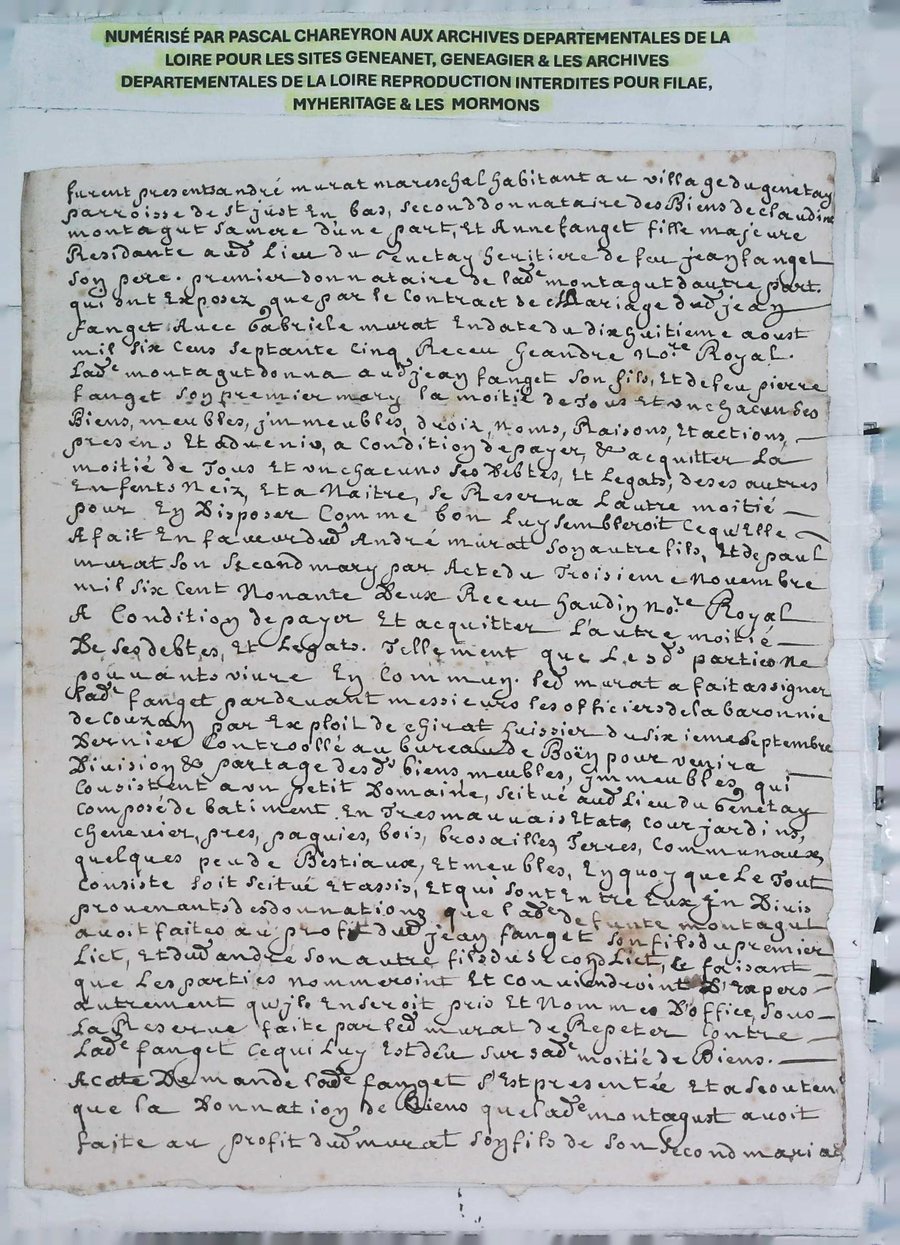 NUMÉRISÉ PAR PASCAL CHAREYRON AUX ARCHIVES DEPARTEMENTALES DE LA
LOIRE POUR LES SITES GENEANET, GENEAGIER & LES ARCHIVES
DEPARTEMENTALES DE LA LOIRE REPRODUCTION INTERDITES POUR FILAE,
MYHERITAGE & LES MORMONS
furent presents andré murat mareschal habitant au village du genetay
parroisse de st just En bas, second donnataire des Biens de claudine
montagut sa mere d'une part, Et Anne fanget fille majeure
Residante aud Lieu du Genetay heritiere de feu jean fanget
son pere. premier donnataire de lade montagut d'autre part.
qui ont Exposez que par le Contract de Mariage dud jean
fanget Avec Gabriele murat En date du dix huitieme aoust
mil six Cens septante Cinq Receu Noire Royal.
Lade montagut donna aud jean fanget son fils, Et de feu pierre
fanget son premier mary la moitié de Tous Et vn chacun ses
Biens, meubles, jmmeubles, droix, Noms, Raisons, Et actions,
presens Et Aduenir, a Condition de payer, & acquitter La
moitié de Tous Et vn chacuns ses Debtes, Et Legats, de ses autres
Enfents Neiz, Et a Naitre, se Reserua Lautre moitié
pour En Disposer Comme bon Luy sembleroit Ce qu'Elle
A fait En faueur dud André murat son autre fils, Et de paul
murat son second mary par Acte du Troisieme Novembre
mil six Cent Nonante Deux Receu Noire Royal
A Condition de payer Et acquitter L'autre moitié
De ses debtes, Et Legats. Tellement que Lesds parties Ne
pouuants viure En Commun. led murat a fait assigner
lade fanget pardeuant messieurs les officiers de la baronnie
de Couzan par Exploit de chirat huissier du sixieme septembre
Dernier Controollé au bureau de Boën pour venir a
Diuision & partage desds biens, meubles, jmmeubles, qui
Consistent a vn petit Domaine, scitué aud Lieu du Genetay
Composé de batiment En Tres mauuais Etats, Cour jardins,
cheneuier, pres, paquies, bois, brosailles, Terres, Communaux,
quelques peu de Bestiaux, Et meubles, En quoy que Le Tout
Consiste soit scitué Et assis, Et qui sont Entre Eux jn Diuis
prouenants des donnations que lade defunte montagut
auoit faites au profit dud jean fanget son fils du premier
Lict, Et dud andré son autre fils du second Lict, le faisant
que Les parties nommeroint Et Conuiendroint D'Expers
autrement qu'jls En seroit pris Et Nommes D'office, sous
La Reserue faite par led murat de Repeter Contre
Lade fanget Ce qui Luy Est deu sur sade moitié de Biens.
A cette Demande lade fanget s'Est presentée Et a
que la Donnation de Biens que lade montagust auoit
faite au profit dud murat son fils de son second